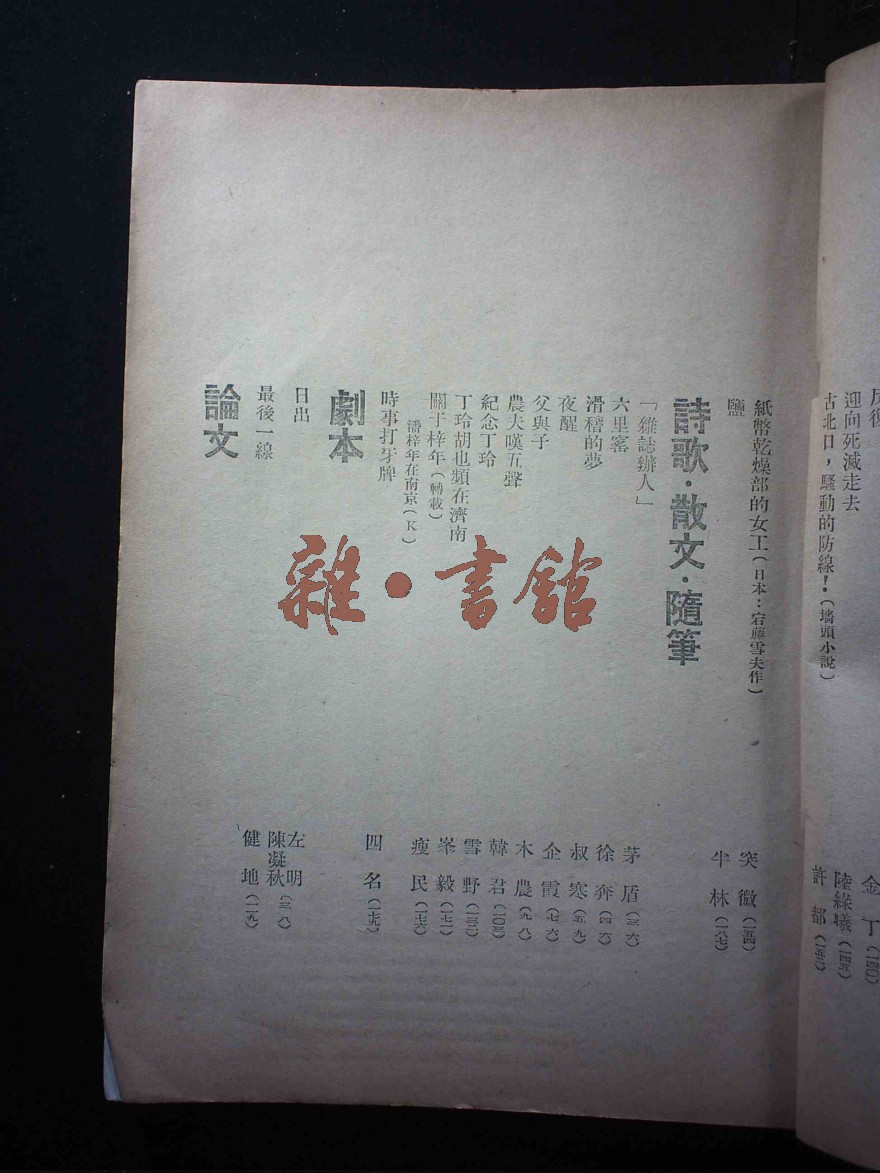 迎向死滅走去 陸綠曦(一四五)
古北口，騷動的防線！(墻頭小說) 許都(一五二)
紙幣乾燥部的女工(日本：宕藤雪夫作) 突微(一五四)
鹽 半林(一八七)
詩歌·散文·隨筆
「雜誌辦人」 茅盾(三六)
六里窰 徐奔(四六)
滑稽的夢 叔寒(五九)
夜醒 企霞(七六)
父與子 木農(九八)
農夫嘆五聲 韓君(一〇四)
紀念丁玲 雪野(一三二)
丁玲胡也頻在濟南 峯毅(一七一)
關于梓年(轉載) 瘦民(一七六)
潘梓年在南京(K)
時事打牙牌 四名(一七七)
劇本
日出 左明 陳凝秋(三八)
最後一線 健地(一一九)
論文
雜·書館